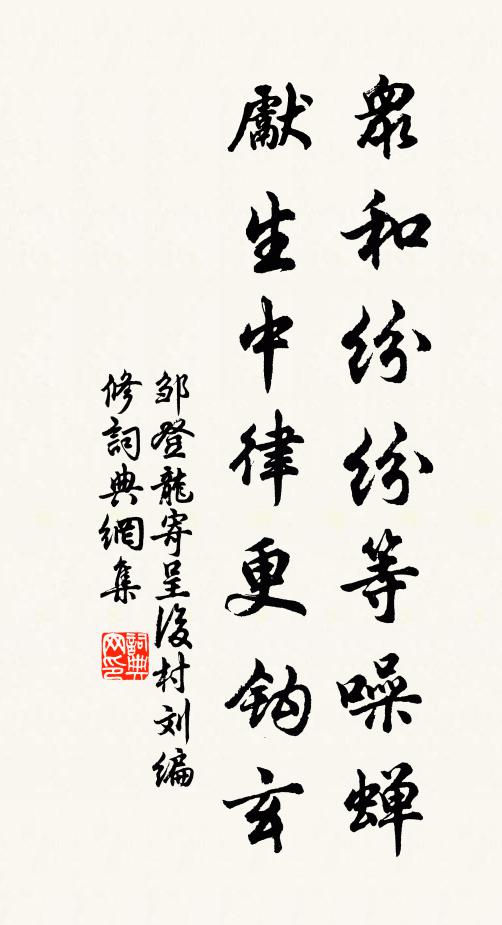 眾和紛紛等噪蟬
獻生中律更鈎玄
邹登龍寄呈後村刘编
修詞典網集
詞典网印